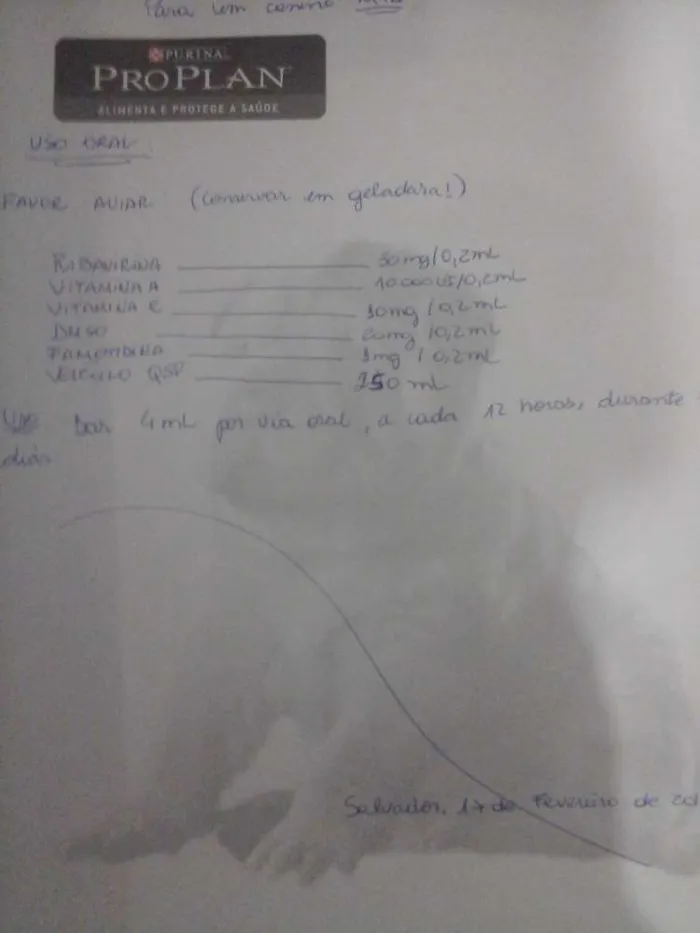 Para um canino
PURINA
PROPLAN
ALIMENTA E PROTEGE A SAÚDE
USO ORAL
FAVOR AVIAR (conservar em geladeira!)
RIBAVIRINA 30mg/0,2mL
VITAMINA A 10000UI/0,2mL
VITAMINA E 10mg/0,2mL
DMSO 20mg/0,2mL
FAMOTIDINA 1mg/0,2mL
VEICULO QSP 250 mL
Dar 4mL por via oral, a cada 12 horas, durante
dias
Salvador, 17 de Fevereiro de 201